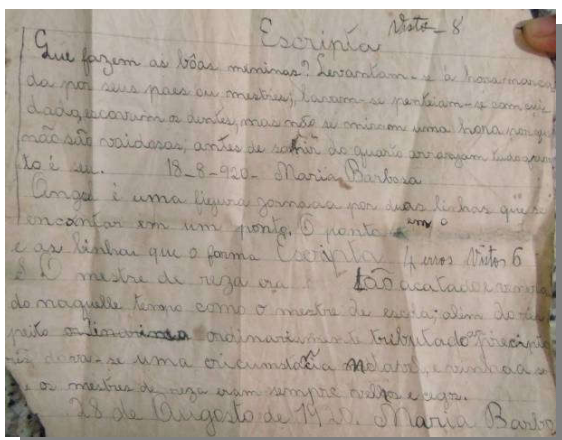 Visto - 8
Escripta
Que fazem as bôas meninas? Levantam-se á hora marca
da por seus paes ou mestres; lavam-se penteiam-se com cui
dado, escovam os dentes, mas não se miram uma hora porque
não são vaidosas, antes de sahir do quarto arranjam tudo quan
to é seu. 18-8-920- Maria Barbosa
Angol é uma figura formada por duas linhas que se
encontar em um ponto. O ponto em
e as linhas que o forma Escripta 4 erros Visto 6
O mestre de reza era tão acatado e venera
do naquelle tempo como o mestre de escola; alem do res
peito ordinariamente tributado
dava-se uma e vinha a se
e os mestres de reza eram sempre velhos e cegos.
28 de Augosto de 1920. Maria Barbo